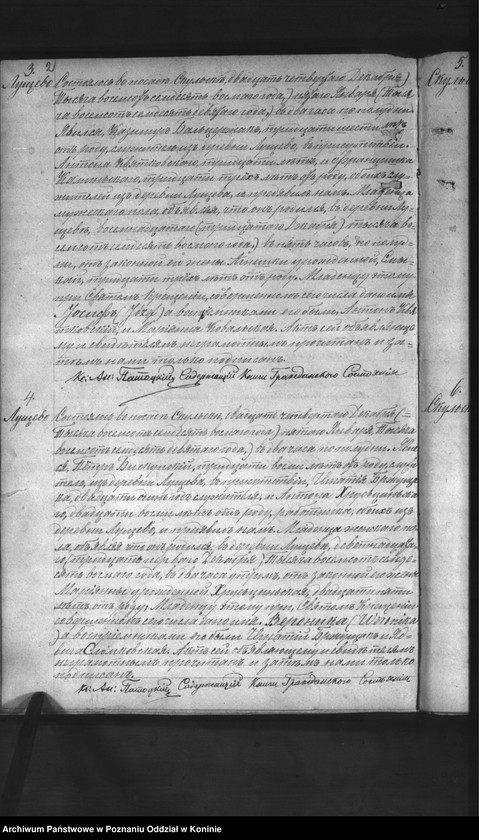 3. 2)
Лущево
Состоялось въ посадѣ Скульскъ, двадцать четвертаго Декабря (
тысяча восемьсотъ семьдесятъ восьмаго года,) пятаго Января (тыся-
ча восемьсотъ семьдесятъ девятаго года,) въ два часа по полудни.
Явился, Казимиръ тридцати шести лѣтъ
отъ роду, служитель изъ деревни Лущево, въ присутствіи
Антона Квятковскаго, тридцати лѣтъ, и Франциска
Каминьскаго, тридцати трехъ лѣтъ отъ роду, обоихъ слу-
жителей изъ деревни Лущева, и предъявилъ намъ Младенца
мужескаго пола, объявляя, что онъ родился, въ деревни Лу-
щевѣ, Декабря) тысяча во-
семьсотъ семьдесятъ восьмаго года,) въ пять часовъ, по полуд-
ни, отъ законной его жены
тридцати трехъ лѣтъ отъ роду. Младенцу этому
при Святомъ Крещеніи, совершенномъ сего числа дано имя
Іосифъ, (Józef) а воспріемниками его были, Антонъ Квят-
ковскій, и Маріанна Ковальская. Актъ сей объявляюще-
му и свидѣтелямъ неграмотнымъ прочитанъ и за-
тѣмъ нами только подписанъ.
Кс: Ан: Патоцкий Содержащій Книги Гражданскаго Состоянія
4.
Лущево
Состоялось въ посадѣ Скульскъ, двадцать четвертаго Декабря (
тысяча восемьсотъ семьдесятъ восьмаго года,) пятаго Января, тысяча
восемьсотъ семьдесятъ девятаго года,) въ два часа по полудни. Явил-
ся, Петръ тридцати восьми лѣтъ отъ роду, служи-
тель, изъ деревни Лущева, въ присутствіи, Игнатія
двадцати лѣтъ служителя, и Антона
двадцати восьми лѣтъ отъ роду, работника, обоихъ изъ
деревни Лущево, и предъявилъ намъ Младенца женскаго по-
ла, объявляя что онъ родился, въ деревни Лущева, девятнадцата-
го (тридцать перваго Декабря) тысяча восемьсотъ семьде-
сятъ восьмаго года, въ два часа утромъ, отъ законной его жены
Маріанны урожденной двадцати пяти
лѣтъ отъ роду. Младенцу этому при, Святомъ Крещеніи
совершенномъ сего числа дано имя. Вероника (Weronika
) а воспріемниками его были Игнатій и
Актъ сей объявляющему и свидѣтелямъ
неграмотнымъ прочитанъ и затѣмъ нами только
подписанъ.
Кс: Ан: Патоцкий Содержащій Книги Гражданскаго Состоянія
5.
6.
Archiwum Państwowe w Poznaniu Oddział w Koninie